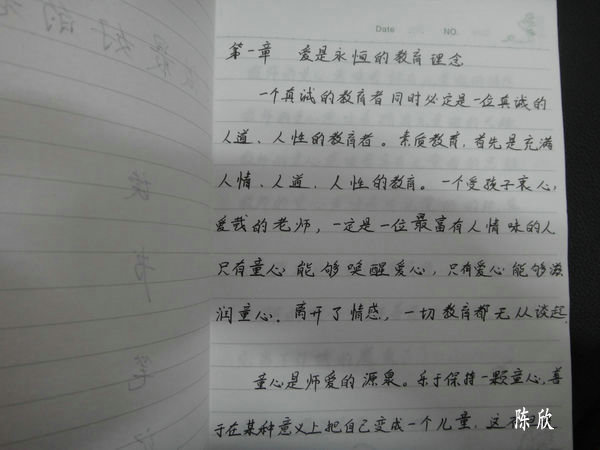 Date NO.
第一章 爱是永恒的教育理念
一个真诚的教育者同时必定是一位真诚的
人道、人性的教育者。素质教育,首先是充满
人情、人道、人性的教育。一个受孩子衷心
爱我的老师,一定是一位最富有人情味的人
只有童心能够唤醒爱心,只有爱心能够滋
润童心。离开了情感,一切教育都无从谈起。
童心是师爱的源泉。乐于保持一颗童心,善
于在某种意义上把自己变成一个儿童,这不
陈欣